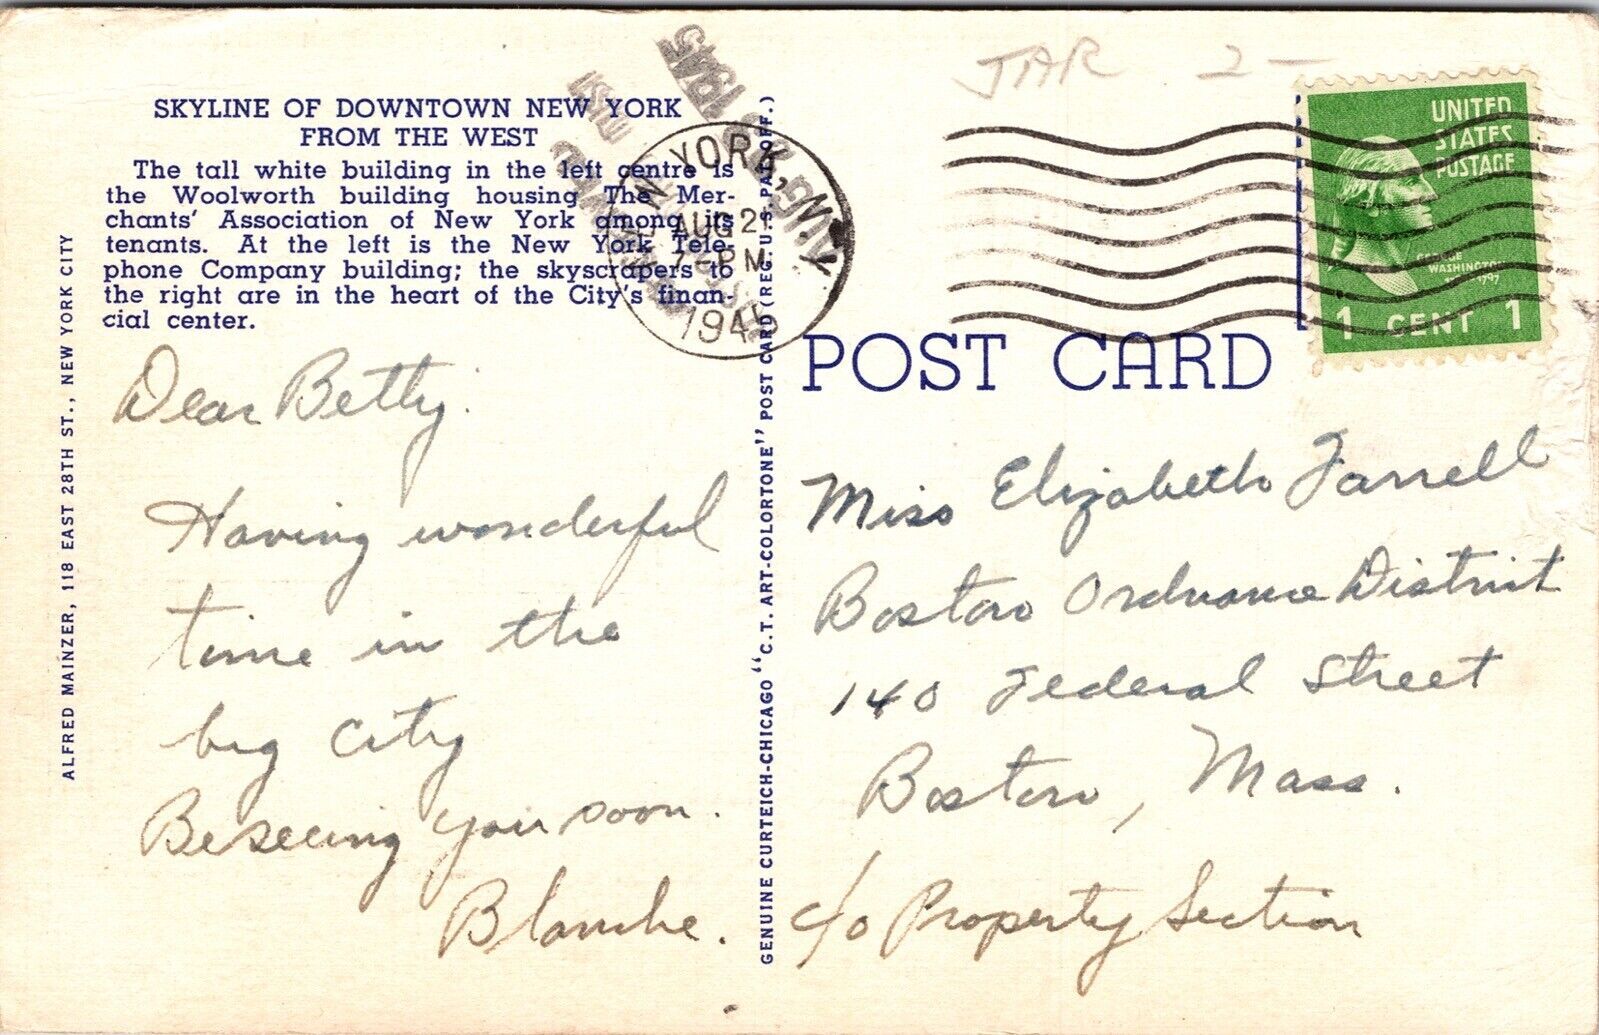 JAR 2-
SKYLINE OF DOWNTOWN NEW YORK
FROM THE WEST
The tall white building in the left centre is
the Woolworth building housing The Mer-
chants' Association of New York among its
tenants. At the left is the New York Tele-
phone Company building; the skyscrapers to
the right are in the heart of the City's finan-
cial center.
YORK, N.Y.
AUG 21
7-PM
1945
AUG 23 1945
UNITED
STATES
POSTAGE
GEORGE
WASHINGTON
1 CENT 1
POST CARD
Dear Betty:
Having wonderful
time in the
big city
Beseeing you soon.
Blanche.
Miss Elizabeth Farrell
Boston Ordnance District
140 Federal Street
Boston, Mass.
c/o Property Section
ALFRED MAINZER, 118 EAST 28TH ST., NEW YORK CITY
GENUINE CURTEICH-CHICAGO "C.T. ART-COLORTONE" POST CARD (REG. U.S. PAT. OFF.)